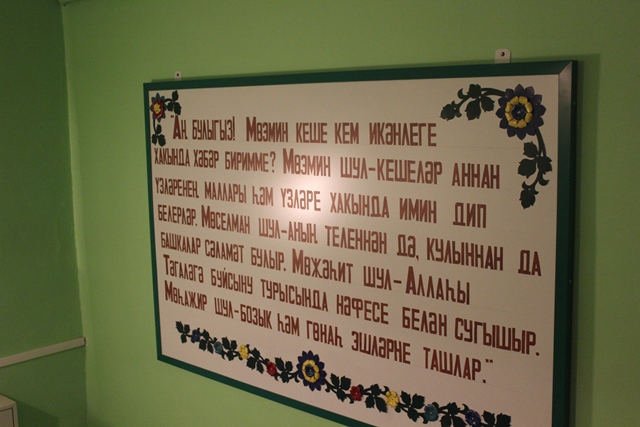 "Аң булыгыз! Мөэмин кеше кем икәнлеге
хакында хәбәр биримме? Мөэмин шул-кешеләр аннан
үзләренең маллары һәм үзләре хакында имин дип
белерләр. Мөселман шул-аның теленнән дә, кулыннан да
башкалар сәламәт булыр. Мөҗәһит шул-Аллаһы
Тәгаләгә буйсыну турысында нәфесе белән сугышыр.
Мөһаҗир шул-бозык һәм гөнаһ эшләрне ташлар."